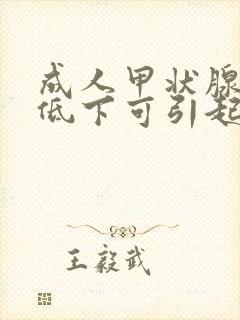 成人甲状腺
低下可引起
王毅武